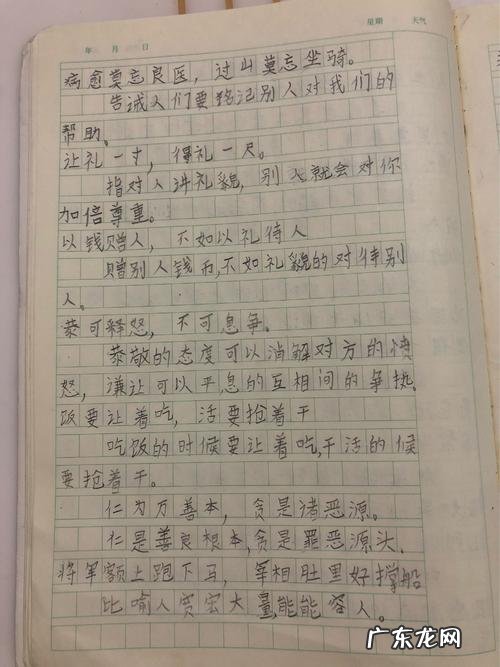 年 月 日 星期 天气
病愈莫忘良医，过山莫忘坐骑。
告诫人们要铭记别人对我们的
帮助。
让礼一寸，得礼一尺。
指对人讲礼貌，别人就会对你
加倍尊重。
以钱赠人，不如以礼待人
赠别人钱币，不如礼貌的对待别
人。
恭可释怒，不可息争。
恭敬的态度可以消解对方的愤
怒，谦让可以平息的互相间的争执.
饭要让着吃，活要抢着干
吃饭的时候要让着吃，干活的候
要抢着干。
仁为万善本，贪是诸恶源。
仁是善良根本，贪是罪恶源头.
将军额上跑下马，宰相肚里好撑船
比喻人宽宏大量能能容人。
广东龙网